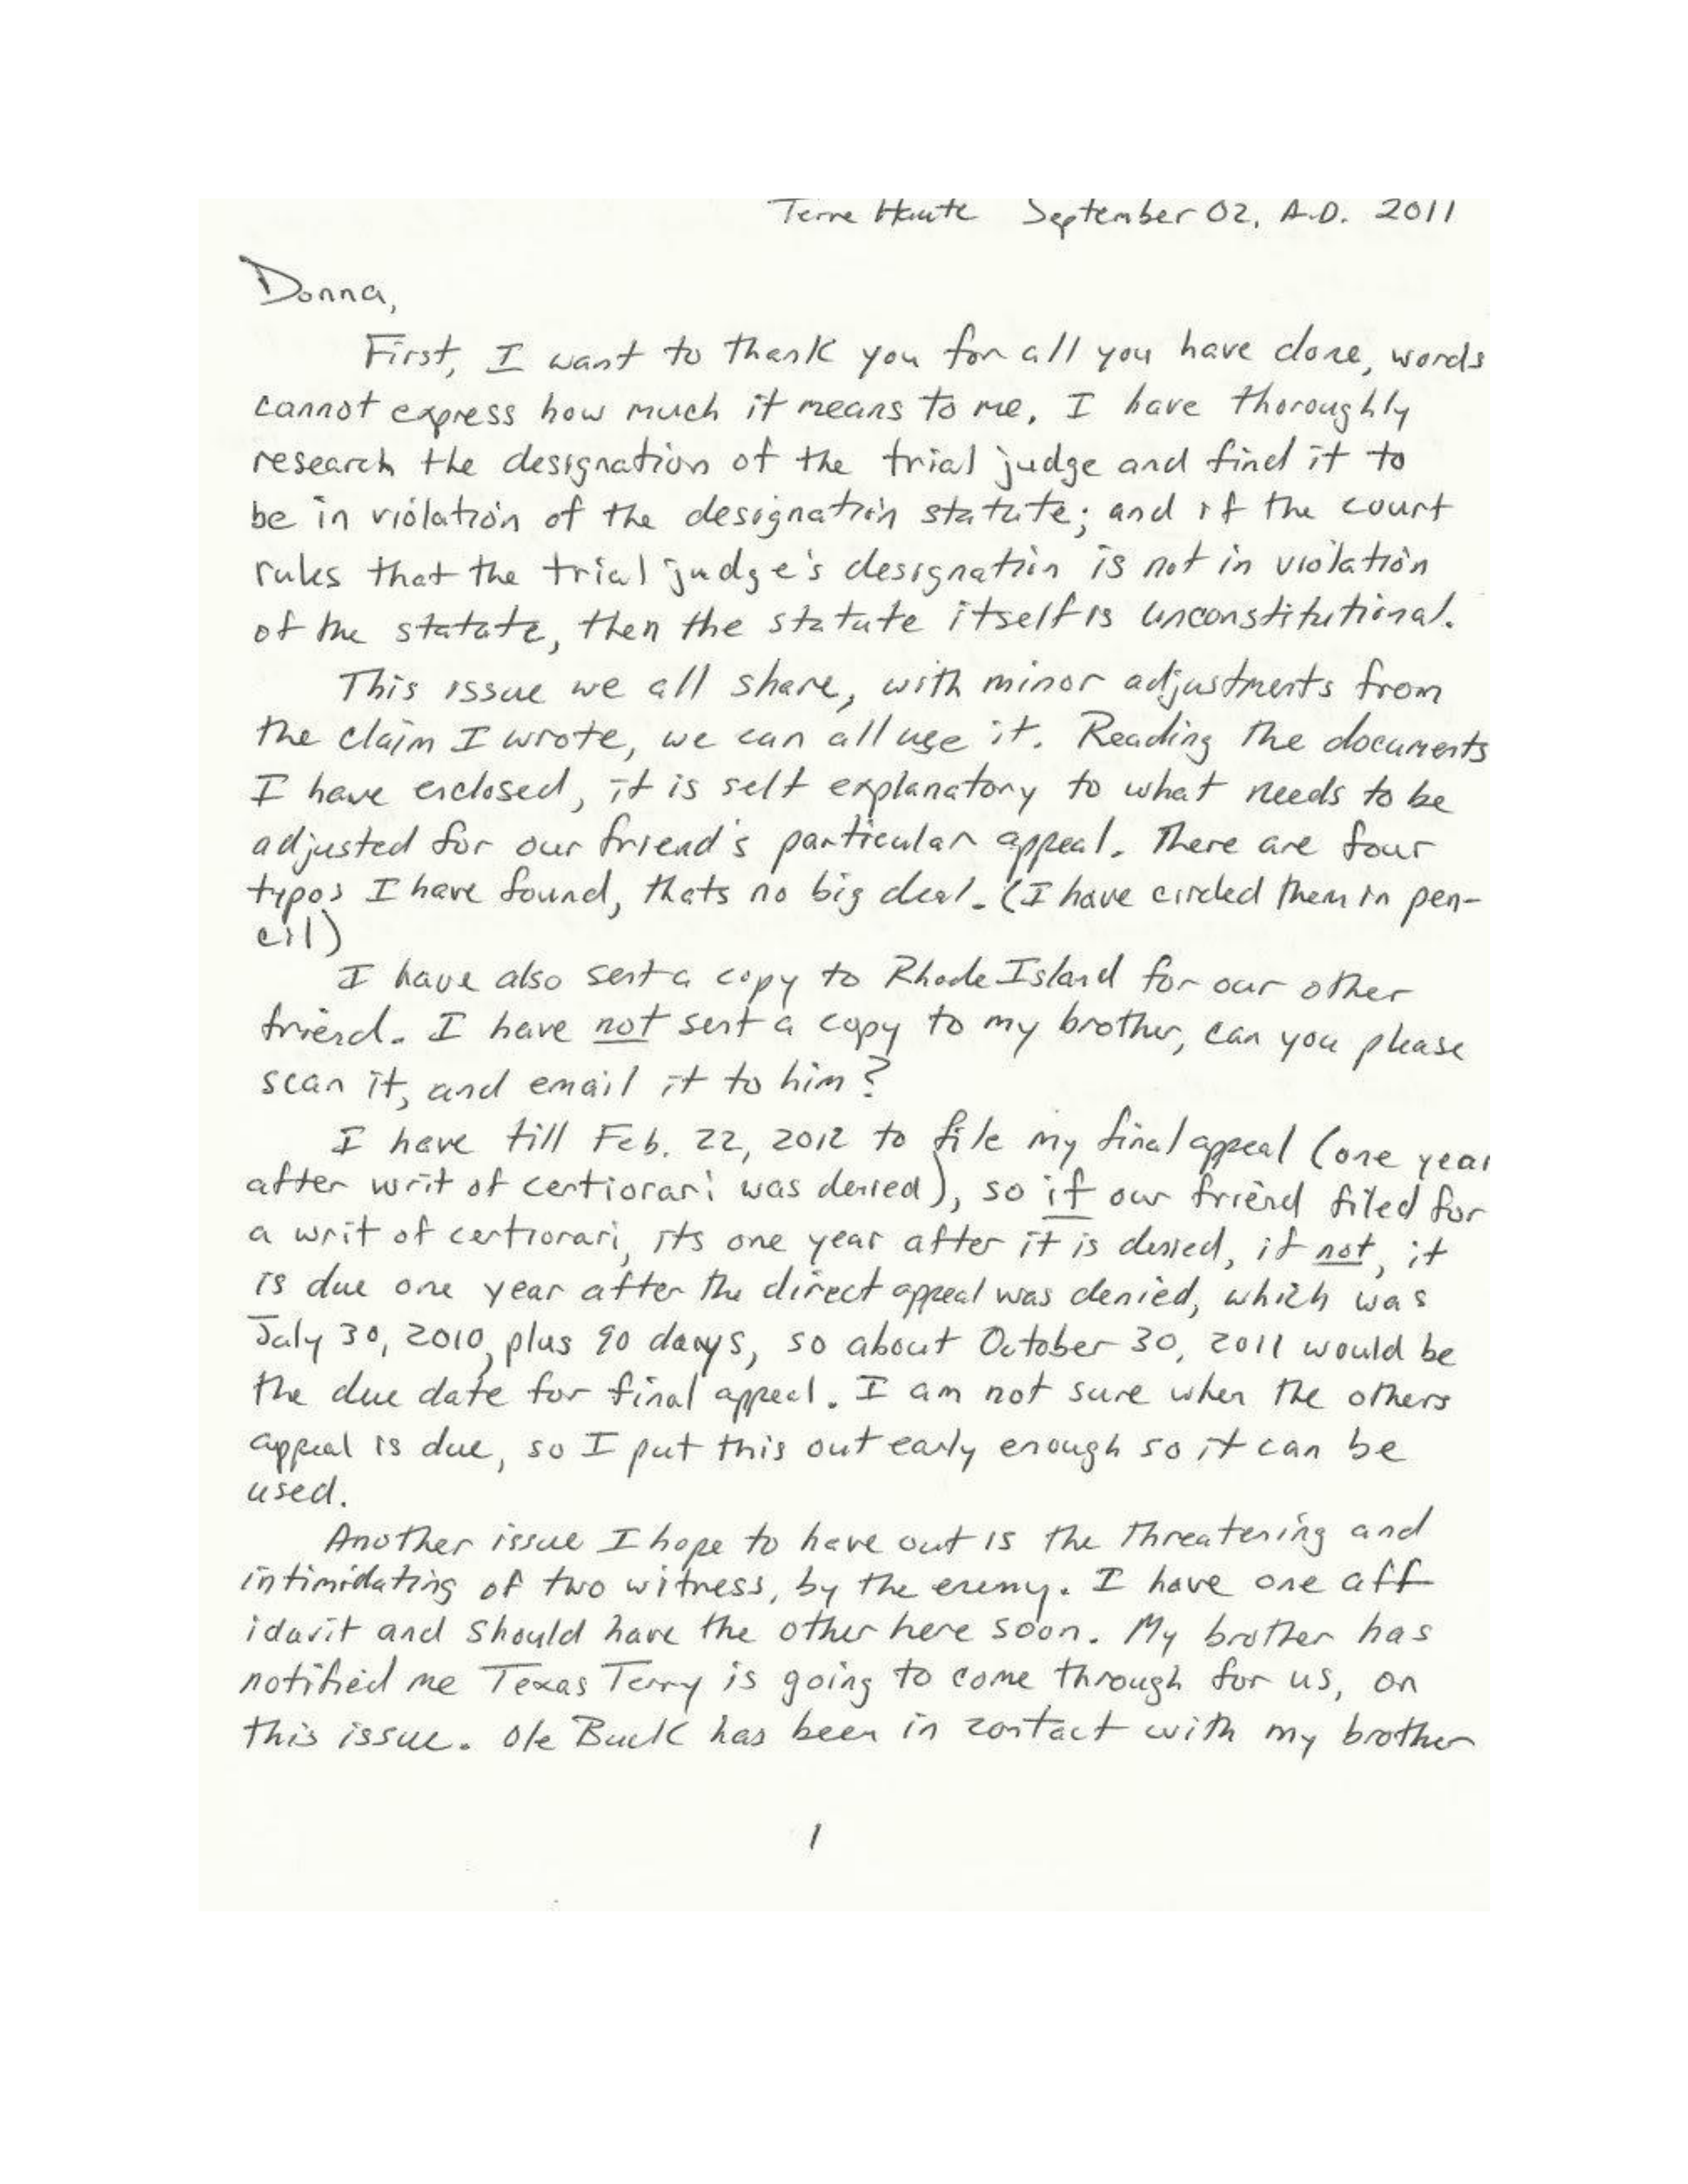 Terre Haute September 02, A.D. 2011
Donna,
First, I want to thank you for all you have done, words
cannot express how much it means to me. I have thoroughly
research the designation of the trial judge and find it to
be in violation of the designation statute; and if the court
rules that the trial judge's designation is not in violation
of the statute, then the statute itself is unconstitutional.
This issue we all share, with minor adjustments from
the claim I wrote, we can all use it. Reading the documents
I have enclosed, it is self explanatory to what needs to be
adjusted for our friend's particular appeal. There are four
typos I have found, thats no big deal. (I have circled them in pen-
cil)
I have also sent a copy to Rhode Island for our other
friend. I have not sent a copy to my brother, can you please
scan it, and email it to him?
I have till Feb. 22, 2012 to file my final appeal (one year
after writ of certiorari was denied), so if our friend filed for
a writ of certiorari, its one year after it is denied, if not, it
is due one year after the direct appeal was denied, which was
July 30, 2010, plus 90 days, so about October 30, 2011 would be
the due date for final appeal. I am not sure when the others
appeal is due, so I put this out early enough so it can be
used.
Another issue I hope to have out is the threatening and
intimidating of two witness, by the enemy. I have one aff
idavit and should have the other here soon. My brother has
notified me Texas Terry is going to come through for us, on
this issue. Ole Buck has been in contact with my brother
1